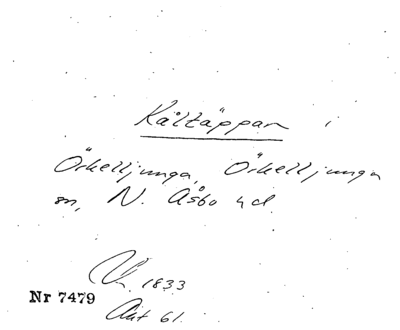 Kåltäppan i
Örkelljunga, Örkelljunga
sn, N. Åsbo hd.
Lh. 1833
Nr 7479
Akt 61.